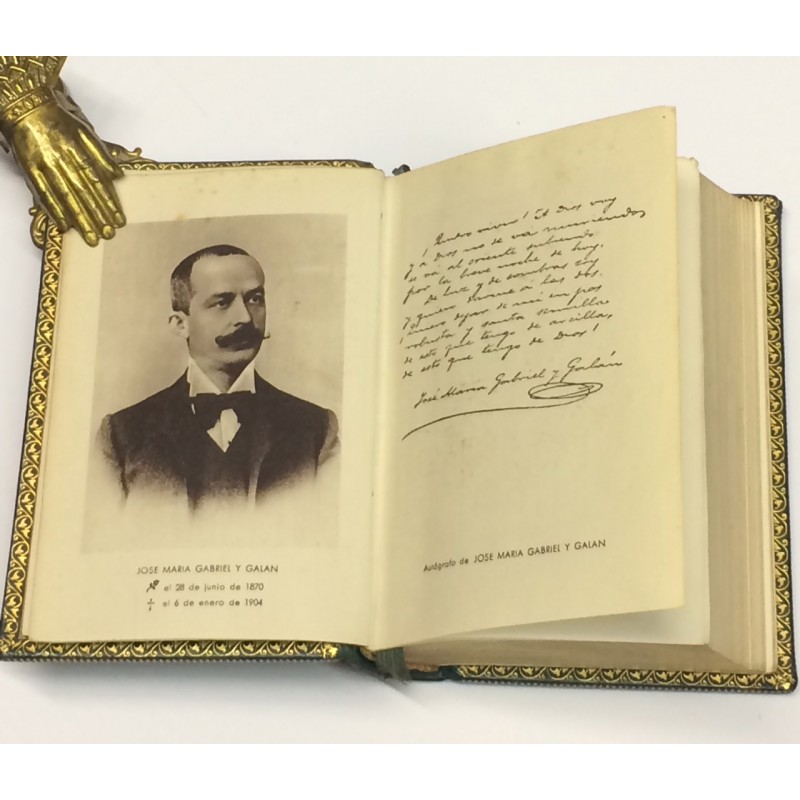 JOSE MARIA GABRIEL Y GALAN
el 28 de junio de 1870
el 6 de enero de 1904
¡Quiero vivir! A Dios voy
y a Dios no se va muriendo,
se va al oriente subiendo
por la breve noche de hoy.
De luz y de sombras soy
y quiero darme a las dos.
¡Quiero dejar de mí en pos
robusta y santa semilla
de esto que tengo de arcilla,
de esto que tengo de Dios!
José María Gabriel y Galán
Autógrafo de JOSE MARIA GABRIEL Y GALAN